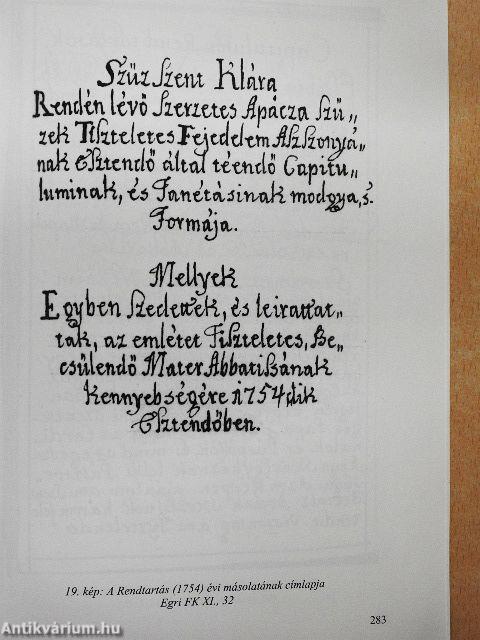 Szűz Szent Klára
Rendén lévő Szerzetes Apácza Szű„
zek Tiszteletes Fejedelem Aszszonyá„
nak Esztendő által téendő Capitu„
luminak, és Tanétásinak modgya, s.
Formája.
Mellyek
Egyben Szedettek, és leirattat„
tak, az emlétet Tiszteletes, Be„
csülendő Mater Abbatißának
Kennyebségére 1754dik
Esztendőben.
19. kép: A Rendtartás (1754) évi másolatának címlapja
Egri FK XI., 32
283
Antikvárium.hu